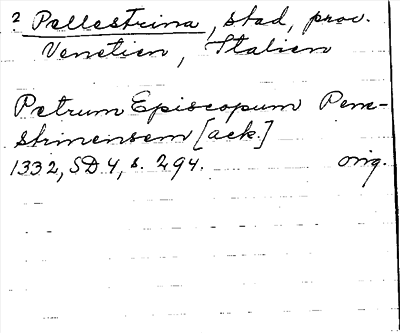 2 Pellestrina, stad, prov.
Venetien, Italien
Petrum Episcopum Pene-
strinensem [ack.]
1332, SD 4, s. 294. orig.